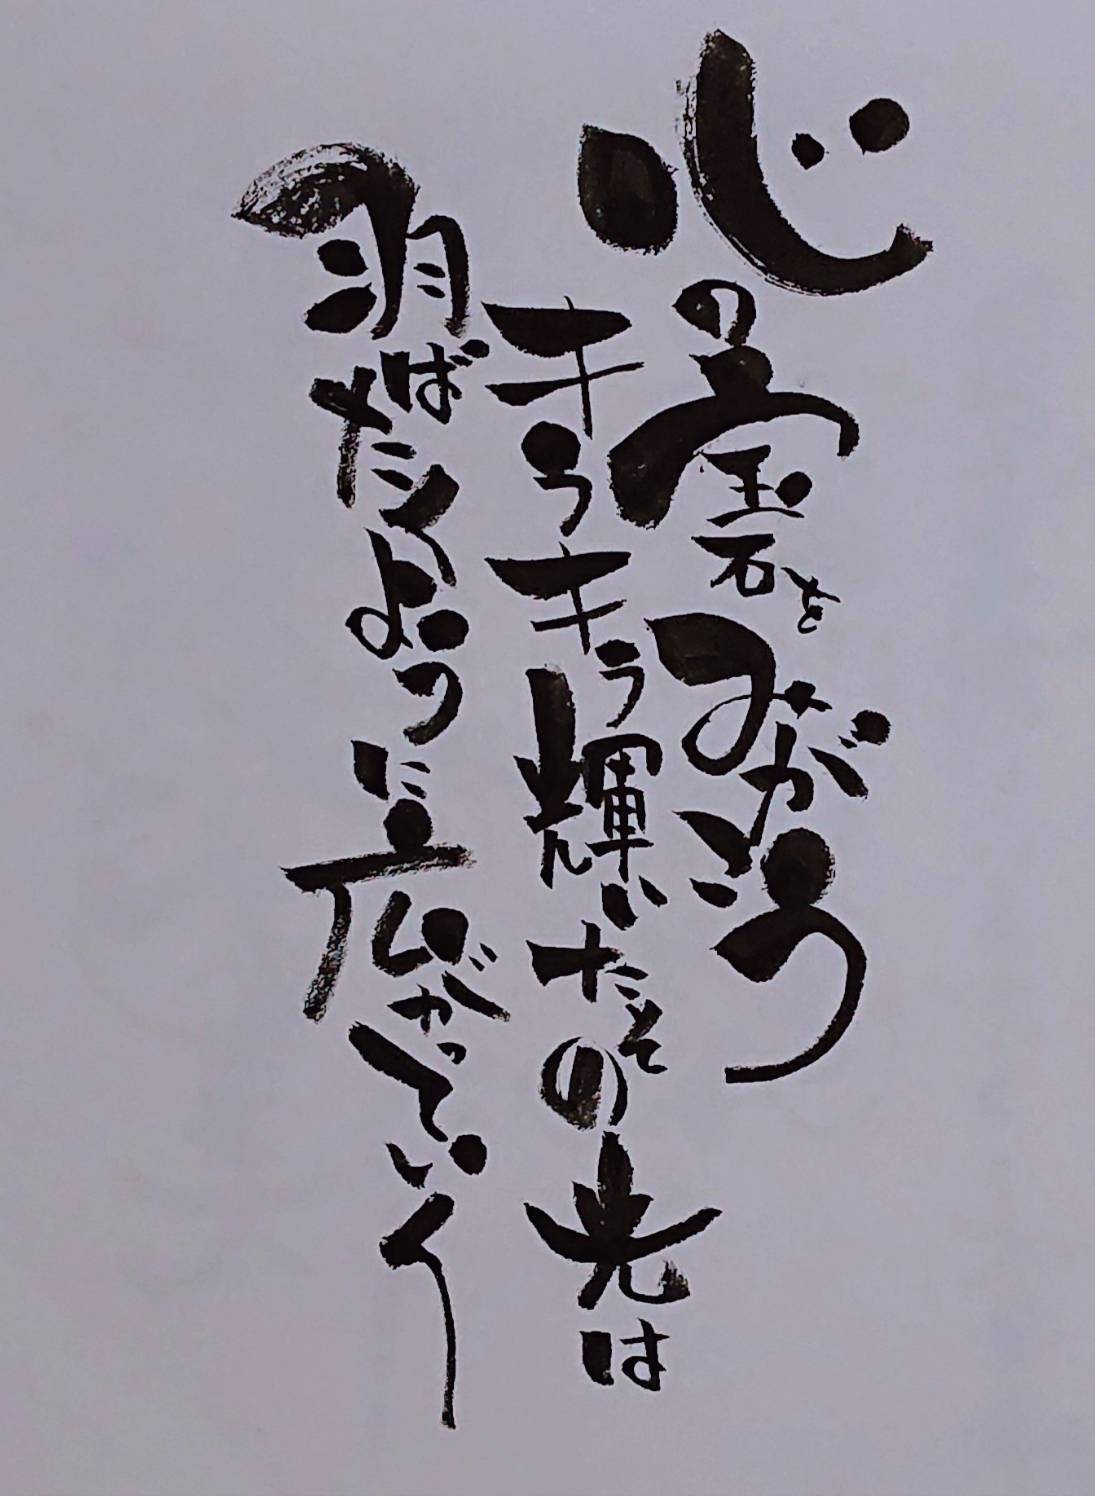 心の宝石をみがこう
キラキラ輝いたその光は
羽ばたくように広がっていく